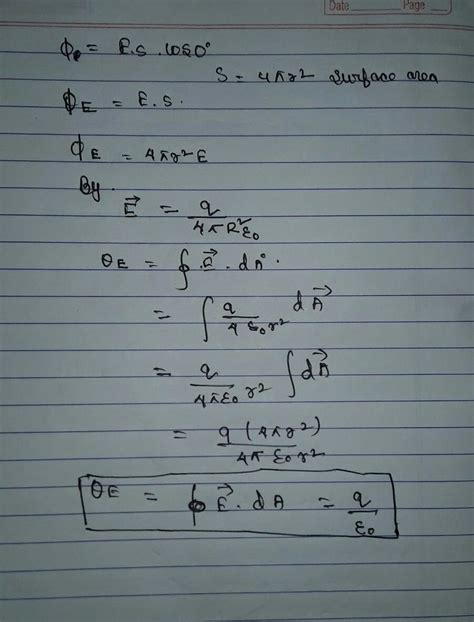 Date Page
ϕₑ = E.S. cos0°
S = 4πr² surface area
ϕ_E = E.S.
ϕ_E = 4πr²E
By.
E⃗ = q / 4πR²ε₀
θ_E = ∮ E⃗ . dA°
= ∫ q / 4 ε₀r² dA⃗
= q / 4πε₀ r² ∫ dA⃗
= q (4πr²) / 4π ε₀r²
θ_E = ∮ E⃗ . dA = q / ε₀